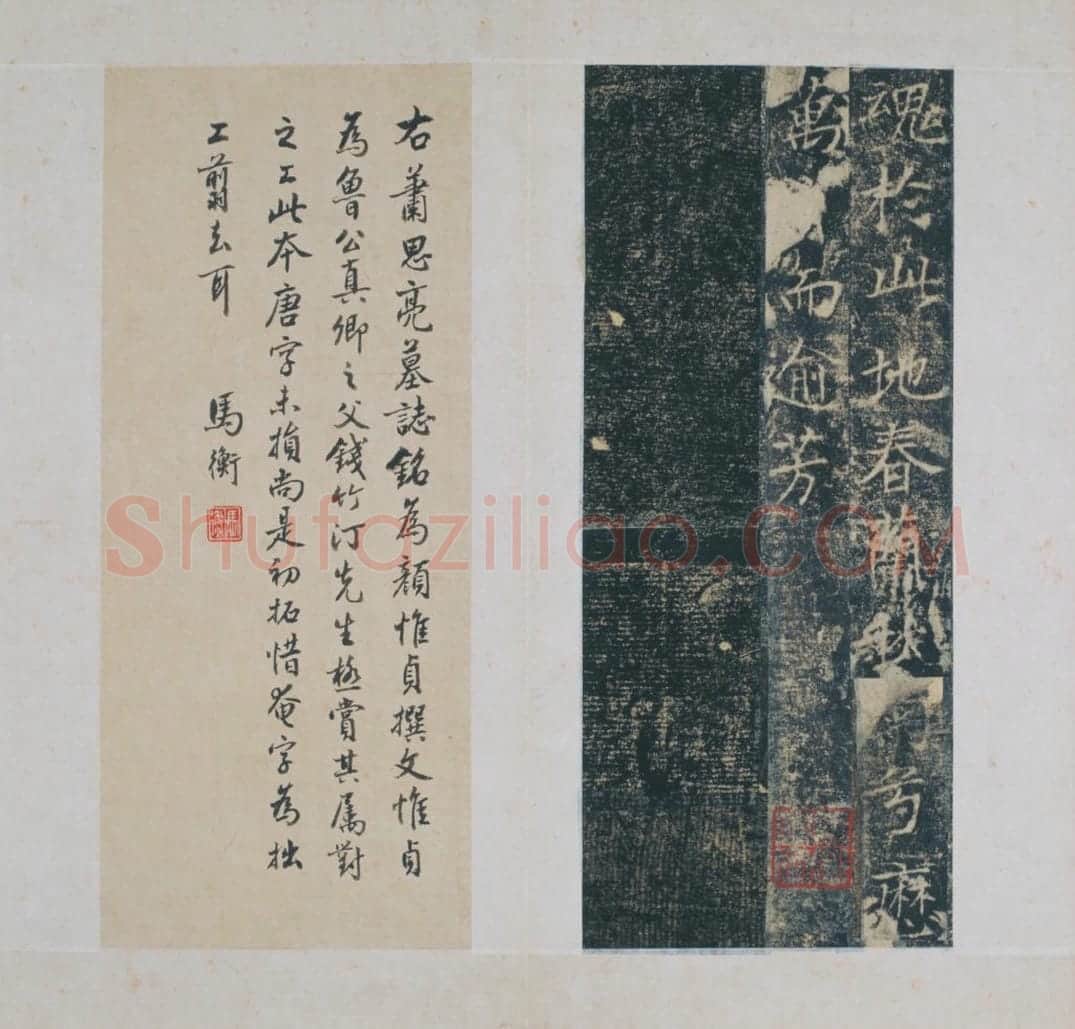 魂於此地春蘭秋
兮歷
萬
而逾芳
右蕭思亮墓誌銘為顏惟貞撰文惟貞
為魯公真卿之父錢竹汀先生極賞其属對
之工此本唐字未損尚是初拓惜奄字為拙
工翦去耳
馬衡
Shufaziliao.com